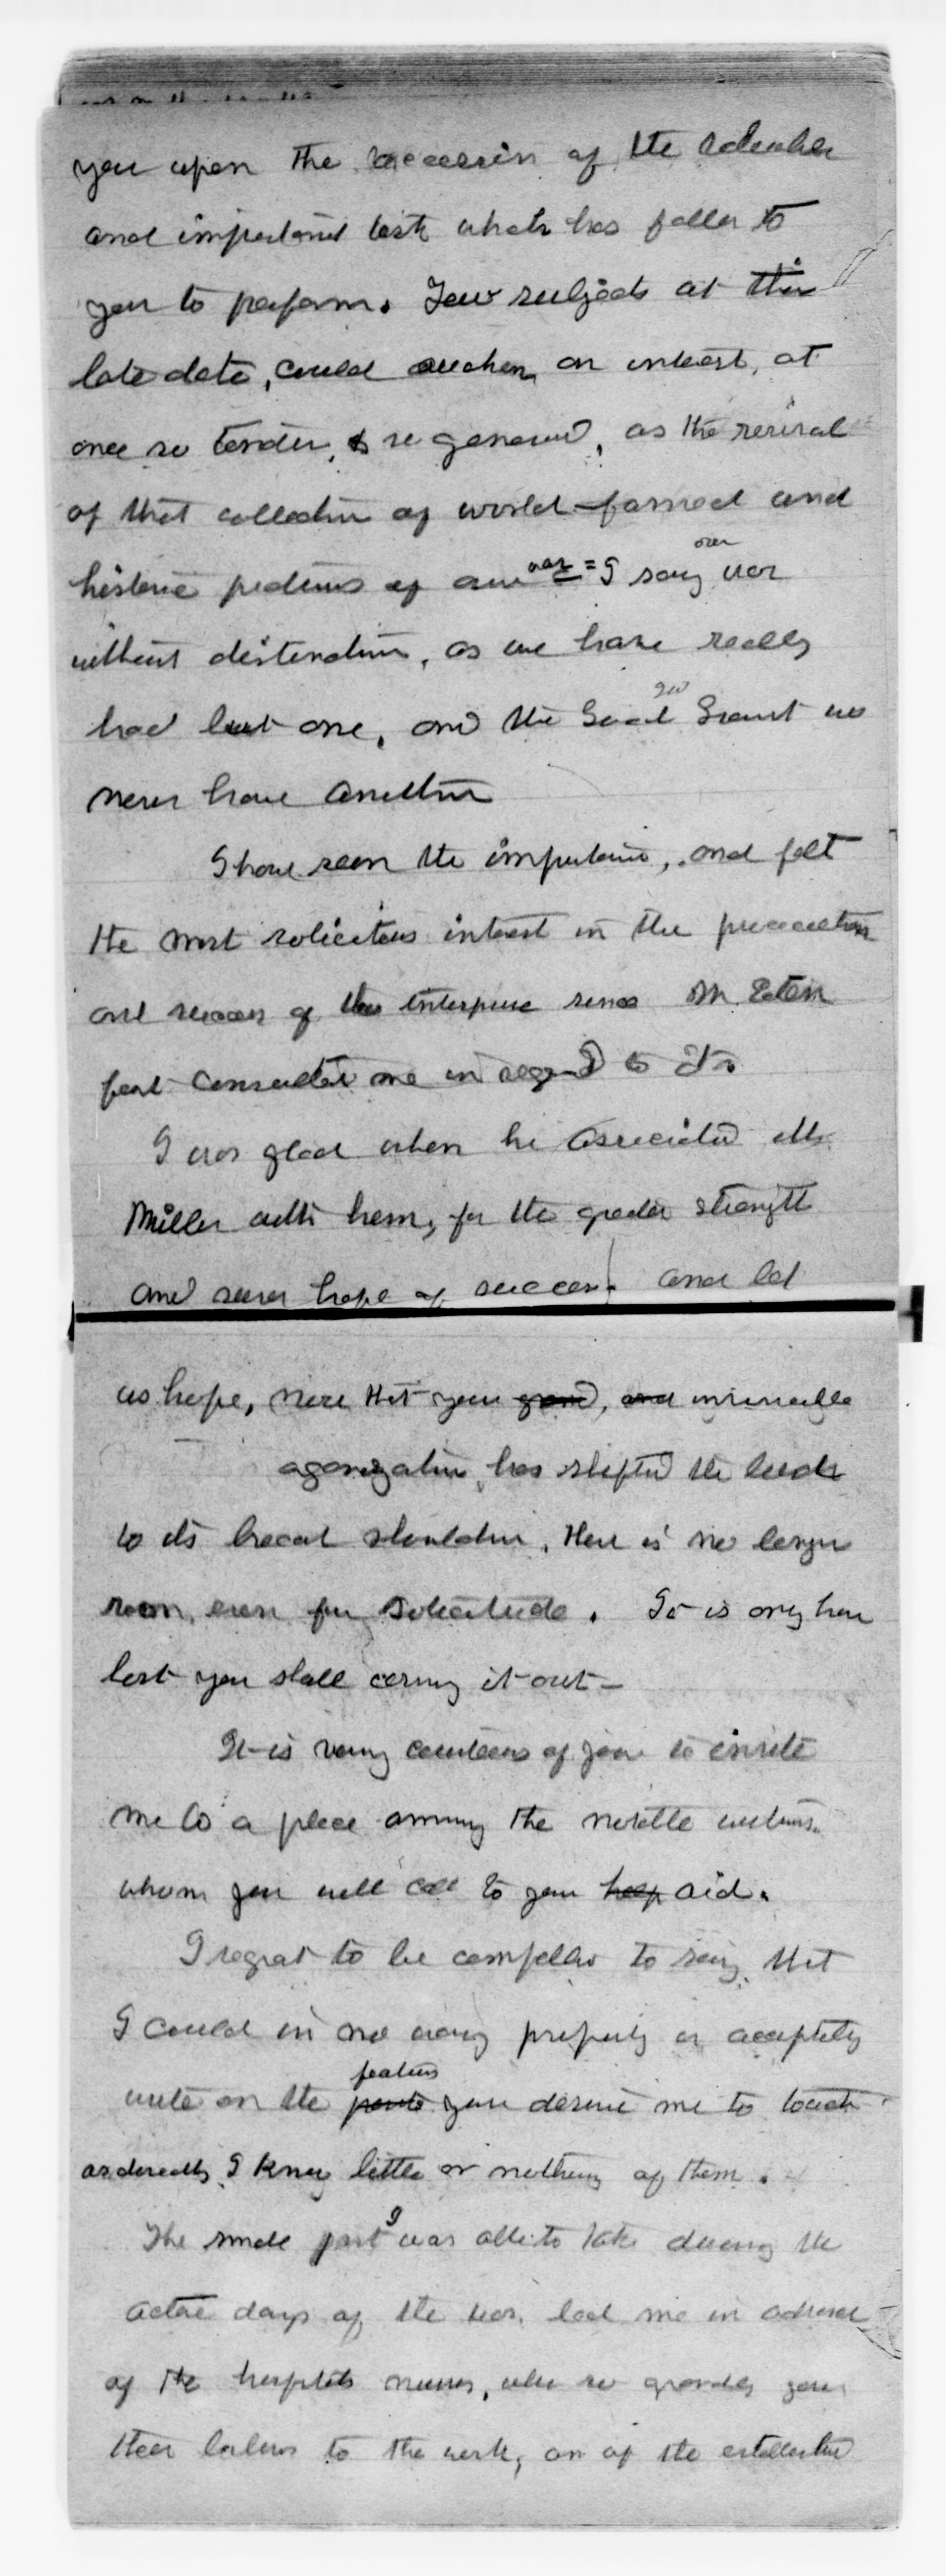 you upon the accession of the valuable
and important task which has fallen to
you to perform. Few subjects at this
late date, could awaken an interest, at
once so tender, & so general, as the revival
of that collection of world-famed and
historic pictures of our war = I say our war
without distinction, as we have really
had but one, and the Good God Grant we
never have another
I have seen the importance, and felt
the most solicitous interest in the
and success of this enterprise since Mr. Eaton
first consulted me in regard to it.
I was glad when he associated Mr.
Miller with him, for the greater strength
and surer hope of success, and let
us hope, now that your grand, and invincible
organization, has shifted the load
to its broad shoulders, there is no longer
room, even for solicitude. It is only how
best you shall carry it out -
It is very courteous of you to invite
me to a place among the notable writers
whom you will call to your help aid.
I regret to be compelled to say, that
I could in no way properly or acceptably
write on the points features you desire me to touch
as directly I know little or nothing of them.
The small part I was able to take during the
active days of the war, led me in advance
of the hospitals nurses, who so grandly gave
their labors to the work, or of the established